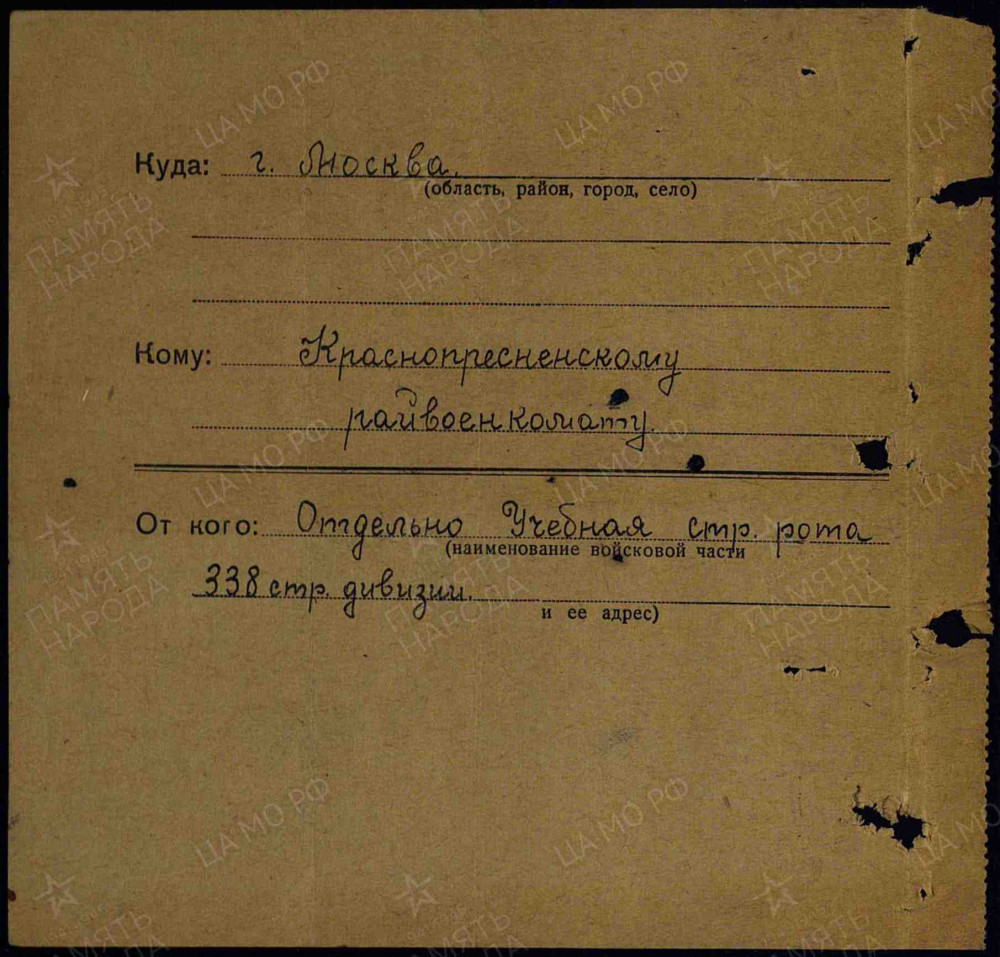 Куда: г. Москва.
(область, район, город, село)
Кому: Краснопресненскому
райвоенкомату.
От кого: Отдельно Учебная стр. рота
(наименование войсковой части
338 стр. дивизии.
и ее адрес)
ЦА МО РФ
ПАМЯТЬ
НАРОДА